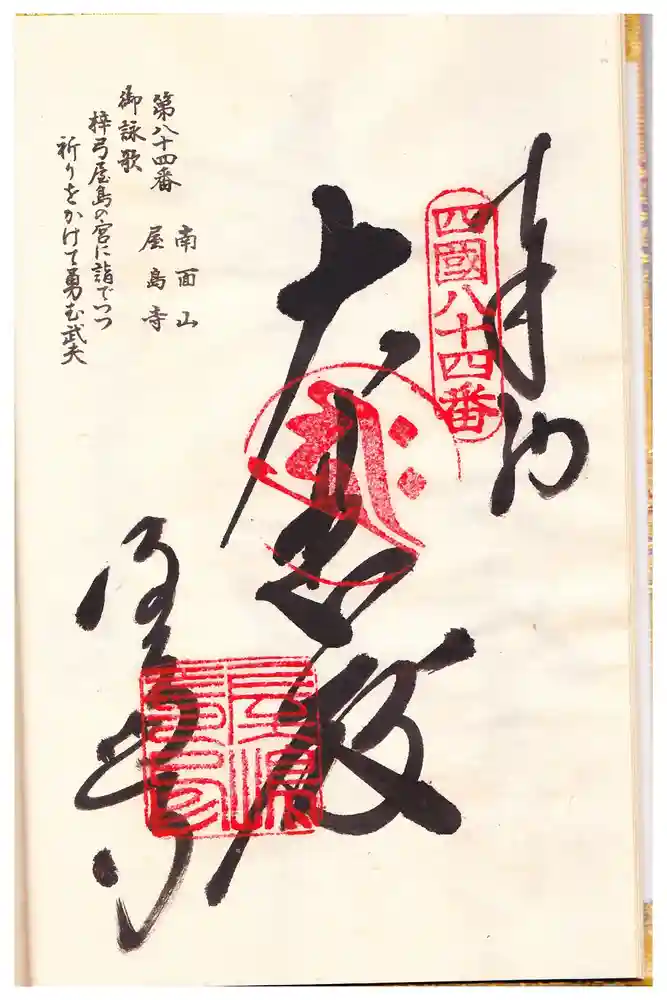 奉納
四國八十四番
大悲殿
屋島寺
第八十四番
南面山
屋島寺
御詠歌
梓弓屋島の宮に詣でつつ
祈りをかけて勇む武夫